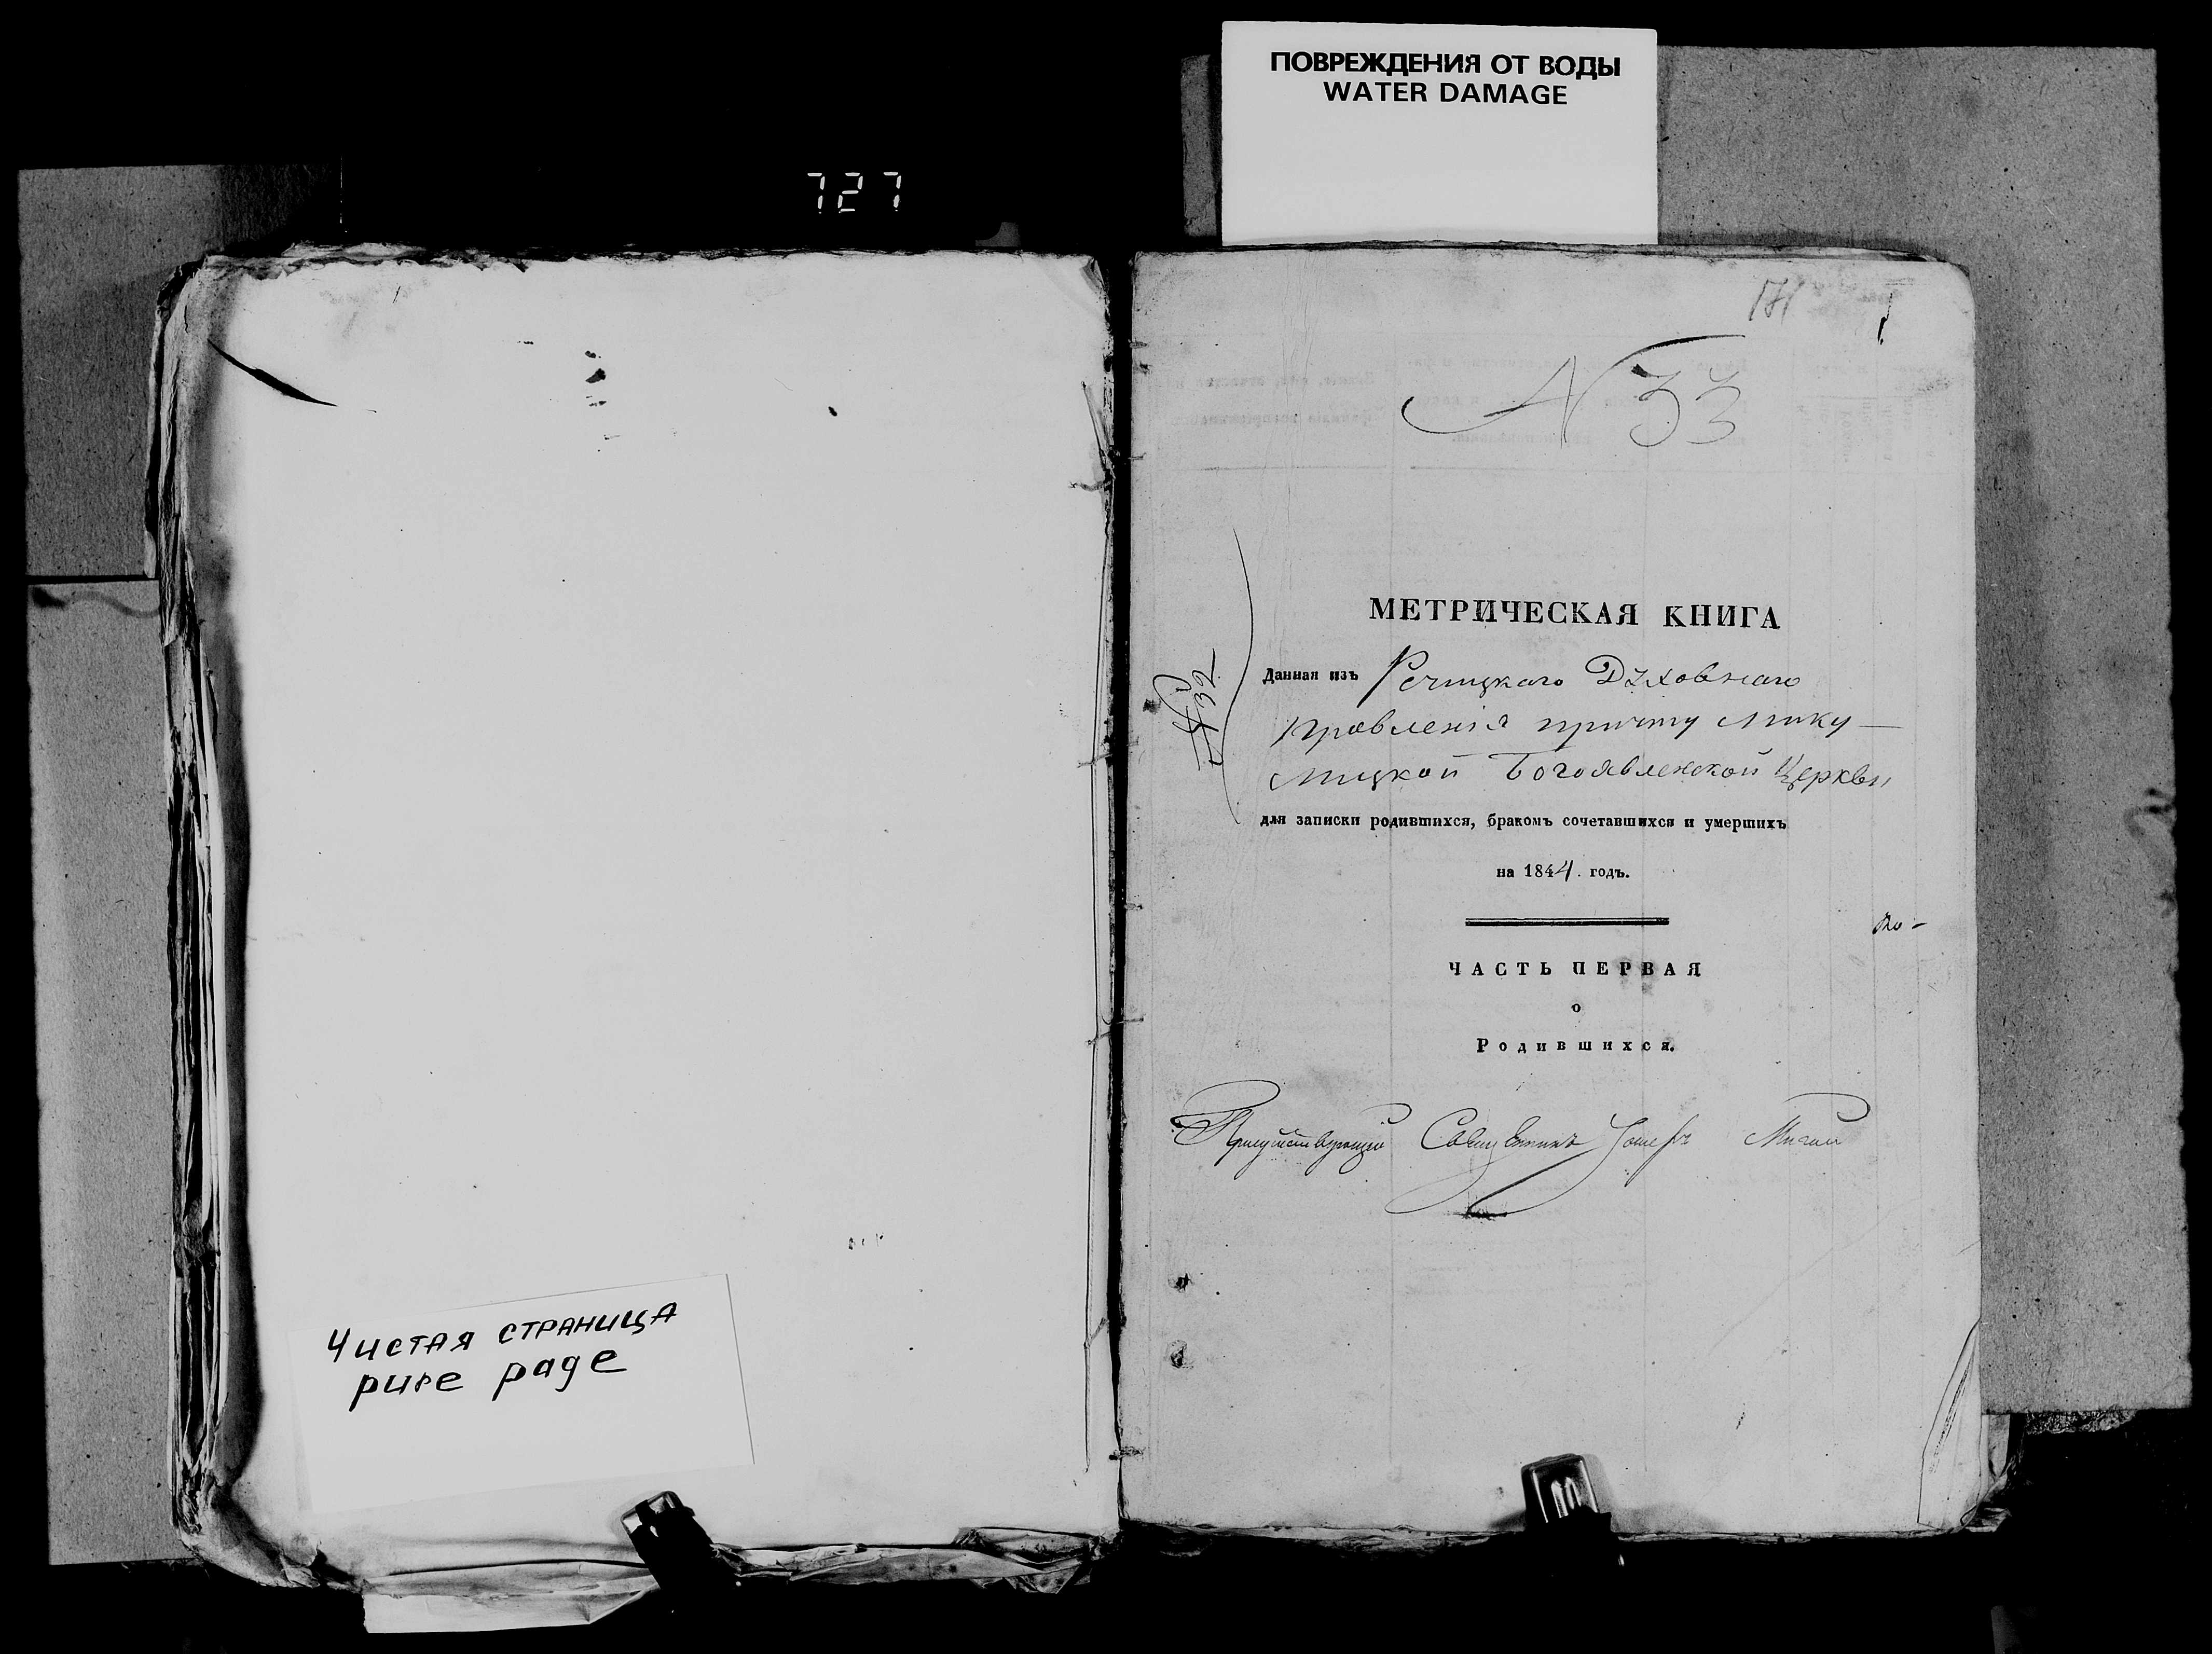 ПОВРЕЖДЕНИЯ ОТ ВОДЫ
WATER DAMAGE
727
171
N 33
N 32
МЕТРИЧЕСКАЯ КНИГА
Данная изъ Речицкаго Духовнаго
Правленія причту Мику-
лицкой Богоявленской Церкви
для записки родившихся, бракомъ сочетавшихся и умершихъ
на 1844. годъ.
ЧАСТЬ ПЕРВАЯ
о
Родившихся.
Присутствующій Священникъ Іосифъ
Чистая страница
pure page